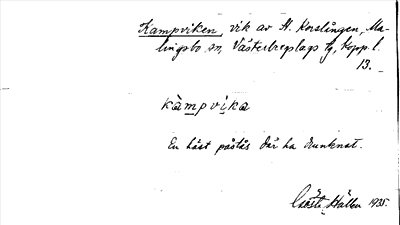 Kampviken, vik av St. Korslången, Ma-
lingsbo sn, Västerbergslags fg, Kopp. l.
13.
kàmpvika
En häst påstås där ha drunknat.
Gösta Hällen 1935.